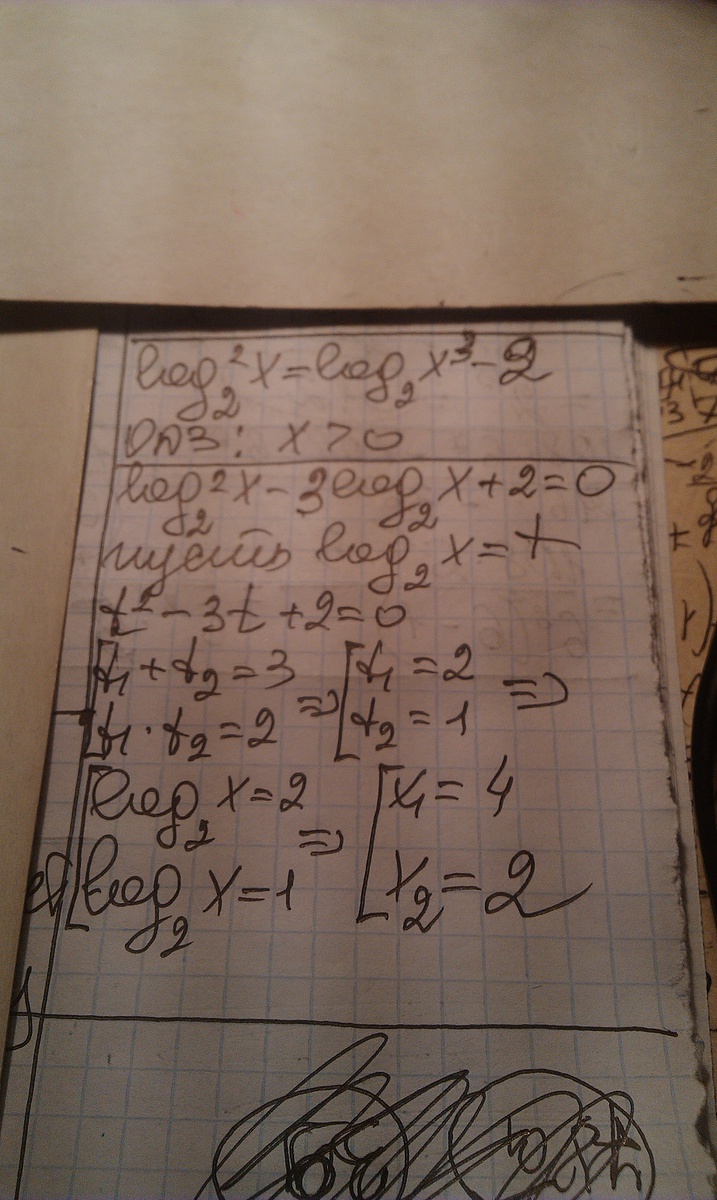 log₂²x = log₂x³ - 2
ОДЗ: x > 0
log₂²x - 3log₂x + 2 = 0
пусть log₂x = t
t² - 3t + 2 = 0
[t₁ + t₂ = 3 ⇒ [t₁ = 2 ⇒
[t₁ · t₂ = 2 [t₂ = 1
[log₂x = 2 ⇒ [x₁ = 4
[log₂x = 1 [x₂ = 2